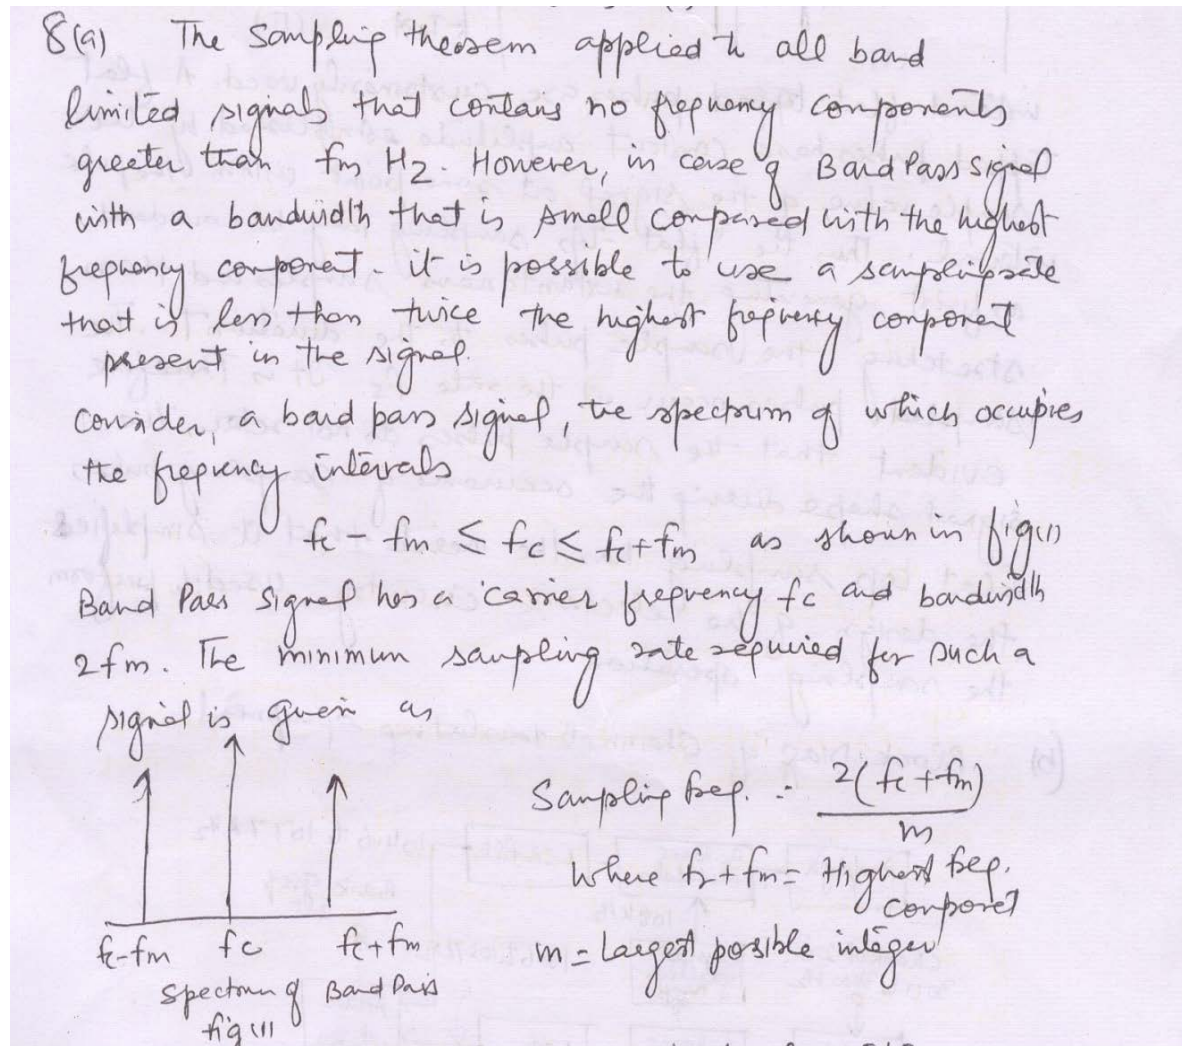 8(a) The sampling theorem applied to all band
limited signals that contains no frequency components
greater than fm Hz. However, in case of Band Pass signal
with a bandwidth that is small compared with the highest
frequency component. it is possible to use a sampling rate
that is less than twice the highest frequency component
present in the signal.
consider, a band pass signal, the spectrum of which occupies
the frequency intervals
fc - fm ≤ fc ≤ fc + fm as shown in fig(1)
Band Pass signal has a carrier frequency fc and bandwidth
2fm. The minimum sampling rate required for such a
signal is given as
Sampling freq. = 2(fc + fm)
m
where fc + fm = Highest freq.
component
m = Largest possible integer
fc-fm fc fc+fm
Spectrum of Band Pass
fig (1)